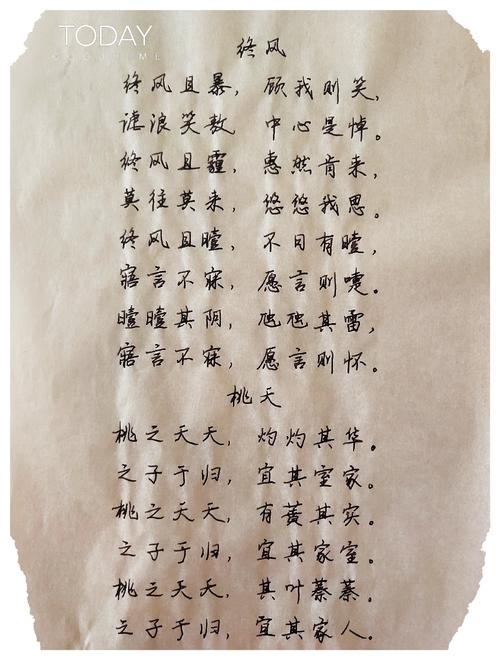 TODAY
终风
终风且暴，顾我则笑，
谑浪笑敖 中心是悼。
终风且霾，惠然肯来，
莫往莫来，悠悠我思。
终风且曀，不日有曀，
寤言不寐，愿言则嚏。
曀曀其阴，虺虺其雷，
寤言不寐，愿言则怀。
桃夭
桃之夭夭，灼灼其华。
之子于归，宜其室家。
桃之夭夭，有蕡其实。
之子于归，宜其家室。
桃之夭夭，其叶蓁蓁。
之子于归，宜其家人。